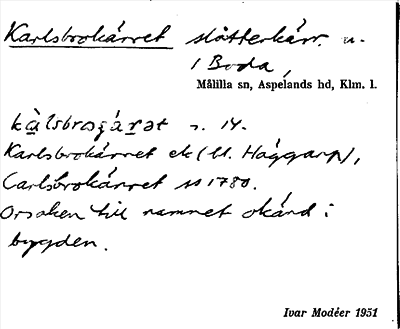 Karlsbrokärret slåtterkärr. u.
/ Boda,
Målilla sn, Aspelands hd, Klm. l.
s. 14.
Karlsbrokärret ek (U. Häggarp),
Carlsbrokärret 1780.
Orsaken till namnet okänd i
bygden.
Ivar Modéer 1951